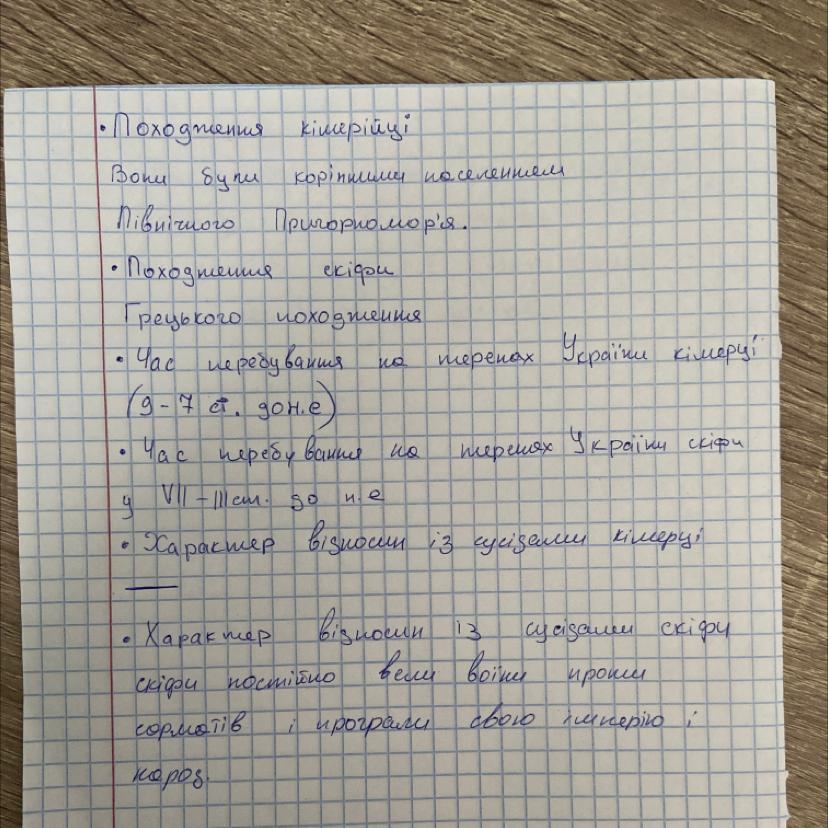 • Походження кімерійці
Вони були корінними населенням
Північного Причорномор'я.
• Походження скіфи
Грецького походження
• Час перебування на теренах України кімерці
(9-7 ст. до н.е)
• Час перебування на теренах України скіфи
у VII-III ст. до н.е
• Характер відносин із сусідами кімерці
—
• Характер відносин із сусідами скіфи
скіфи постійно вели воїни проти
сорматів і програли свою імперію і
народ.